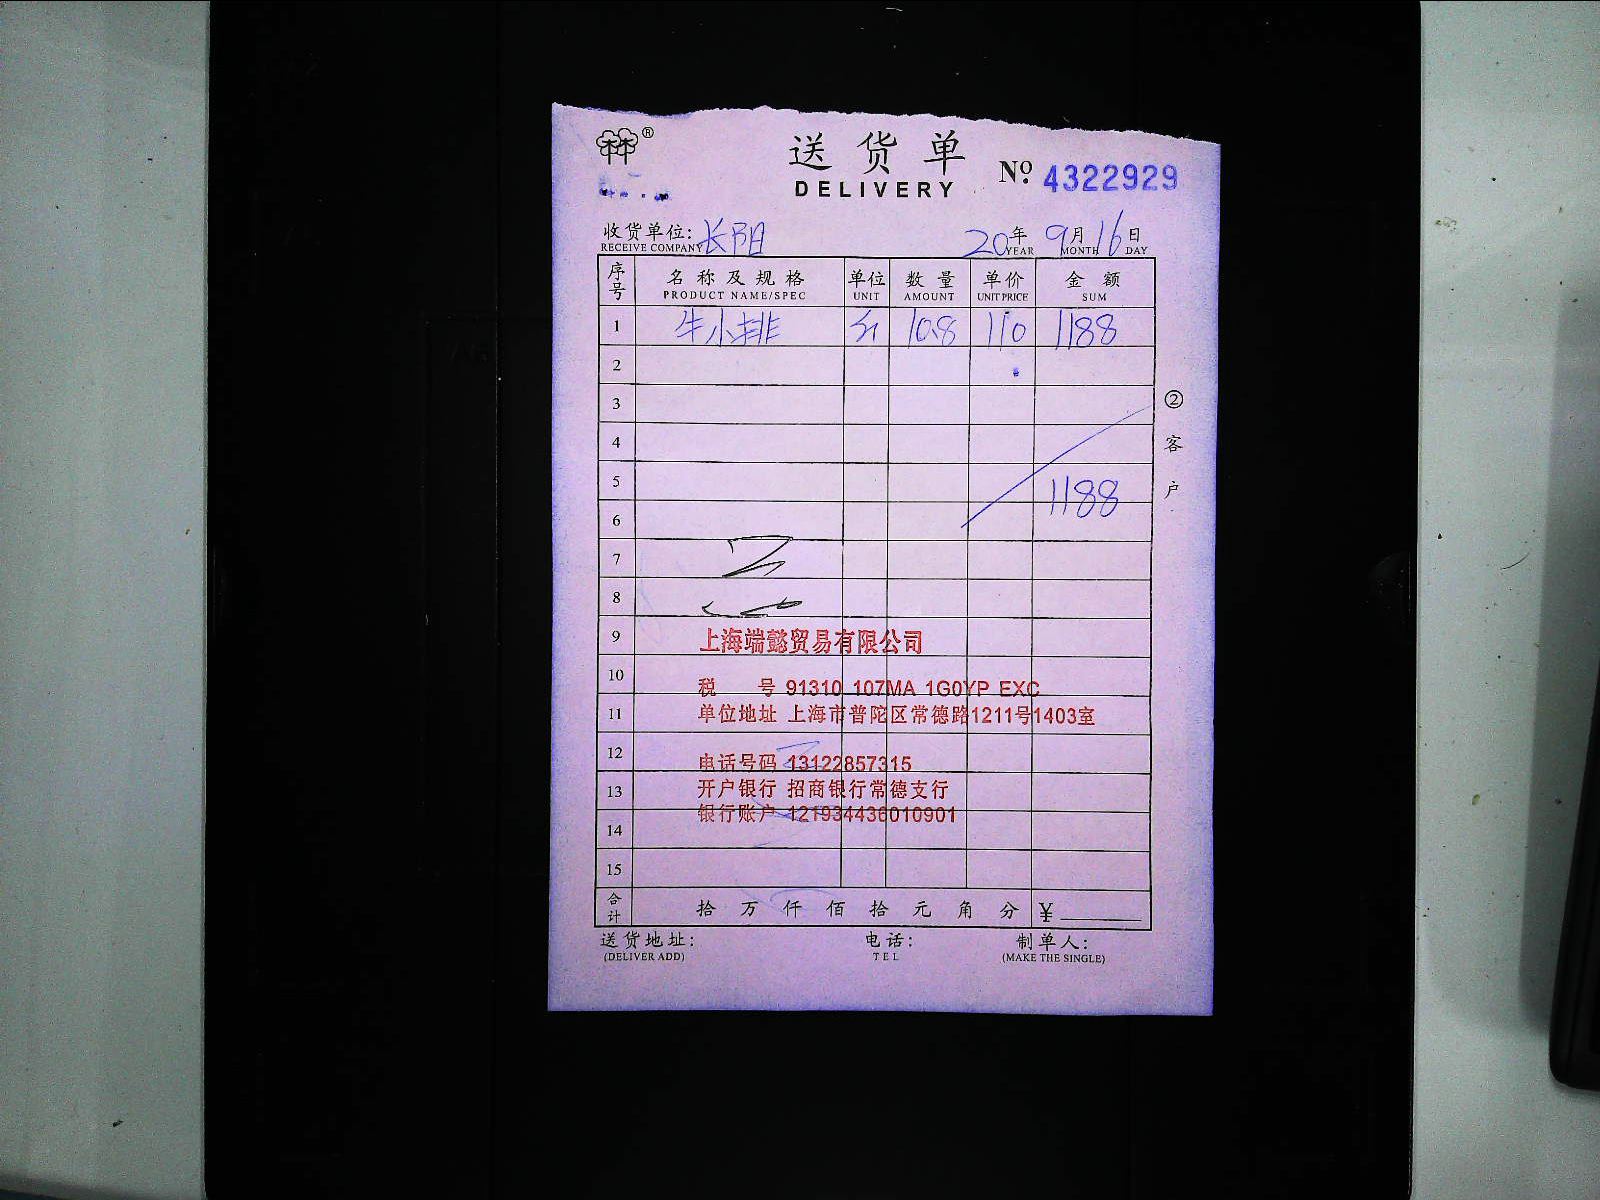 ®
送货单
DELIVERY
Nº. 4322929
收货单位: 长阳 20年 9月 16日
RECEIVE COMPANY YEAR MONTH DAY
序号 名称及规格 单位 数量 单价 金额
PRODUCT NAME/SPEC UNIT AMOUNT UNIT PRICE SUM
1 牛小排 斤 10.8 110 1188
2
3
4
5 1188
6
7
8
9
10
11
12
13
14
15
② 客户
上海端懿贸易有限公司
税 号 91310 107MA 1G0YP EXC
单位地址 上海市普陀区常德路1211号1403室
电话号码 13122857315
开户银行 招商银行常德支行
银行账户 121934436010901
合计 拾 万 仟 佰 拾 元 角 分 ¥
送货地址: 电话: 制单人:
(DELIVER ADD) TEL (MAKE THE SINGLE)